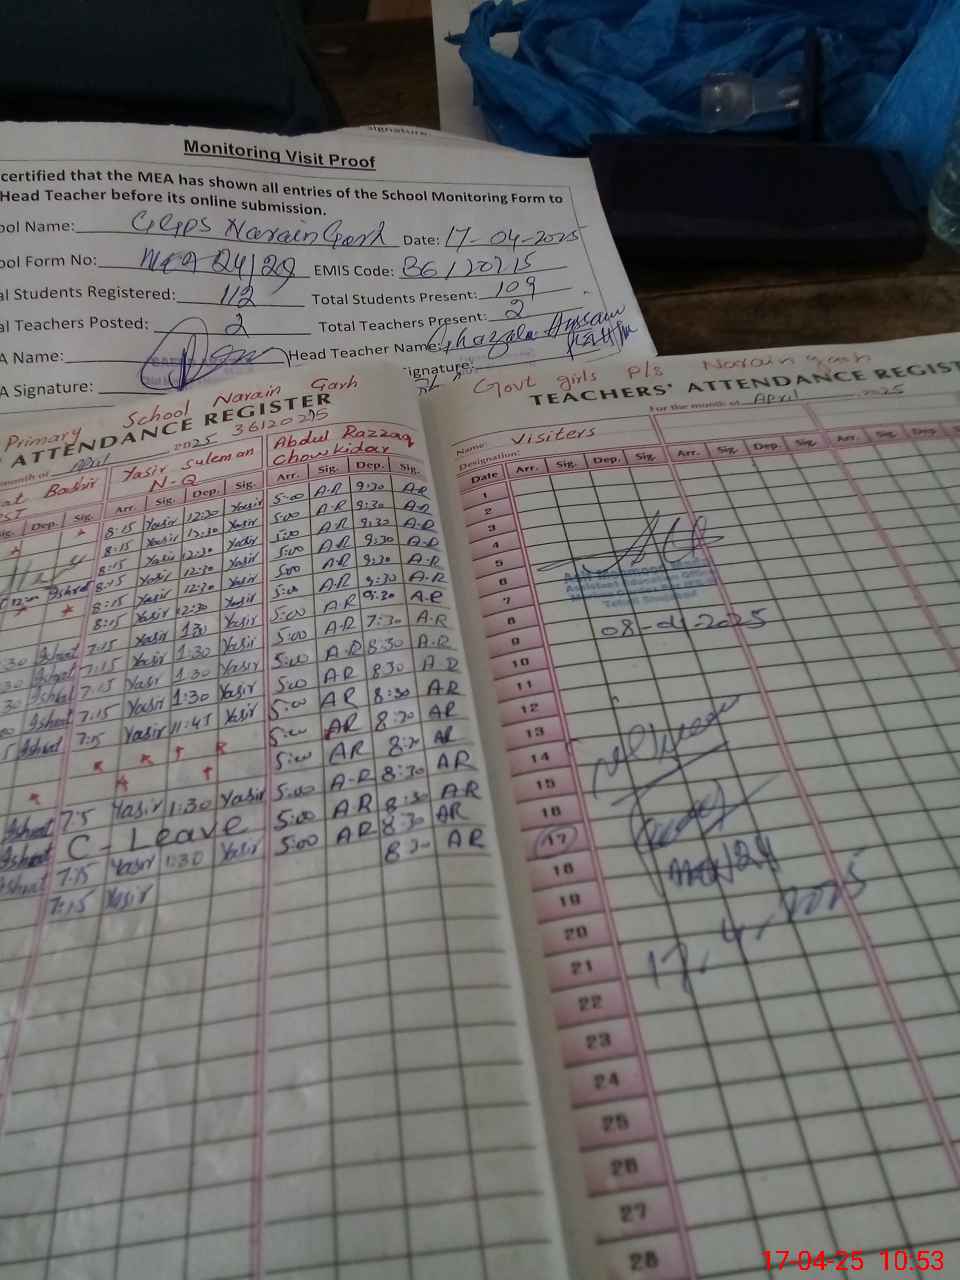 Signature:
Monitoring Visit Proof
certified that the MEA has shown all entries of the School Monitoring Form to
Head Teacher before its online submission.
ool Name: GGPS Narain Garh Date: 17-04-2025
ool Form No: MEA 24/29 EMIS Code: 36120215
al Students Registered: 112 Total Students Present: 109
al Teachers Posted: 2 Total Teachers Present: 2
A Name: Head Teacher Name: Ghazala
A Signature: ignature:
Primary School Narain Garh
ATTENDANCE REGISTER
month of April 2025 36120215
Bashir Yasir Suleman Abdul Razzaq
N-Q Chowkidar
Sig. Dep. Sig. Arr. Sig. Dep. Sig. Arr. Sig. Dep. Sig.
8:15 Yasir 12:30 Yasir 5:00 A-R 9:30 A-R
8:15 Yasir 12:30 Yasir 5:00 A-R 9:30 A-R
8:15 Yasir 12:30 Yasir 5:00 A-R 9:30 A-R
8:15 Yasir 12:30 Yasir 5:00 A-R 9:30 A-R
8:15 Yasir 12:30 Yasir 5:00 A-R 9:30 A-R
7:15 Yasir 1:30 Yasir 5:00 A-R 7:30 A-R
7:15 Yasir 1:30 Yasir 5:00 A-R 8:30 A-R
7:15 Yasir 1:30 Yasir 5:00 AR 8:30 A-R
7:15 Yasir 1:30 Yasir 5:00 AR 8:30 AR
7:15 Yasir 11:45 Yasir 5:00 AR 8:30 AR
5:00 AR AR
7:15 Yasir 1:30 Yasir 5:00 A-R 8:30 AR
C - Leave 5:00 AR 8:30 AR
7:15 Yasir 1:30 Yasir 5:00 AR 8:30 AR
7:15 Yasir
Govt girls P/S Narain garh
TEACHERS' ATTENDANCE REGIST
For the month of April 2025
Name: Visiters
Designation:
Date Arr. Sig. Dep. Sig. Arr. Sig. Dep. Sig. Arr. Sig. Dep.
1
2
3
4
5
6
7
8 08-04-2025
9
10
11
12
13
14
15
16
17
18 MEA/29
19
20
21 17.4.2025
22
23
24
25
26
27
28
17-04-25 10:53